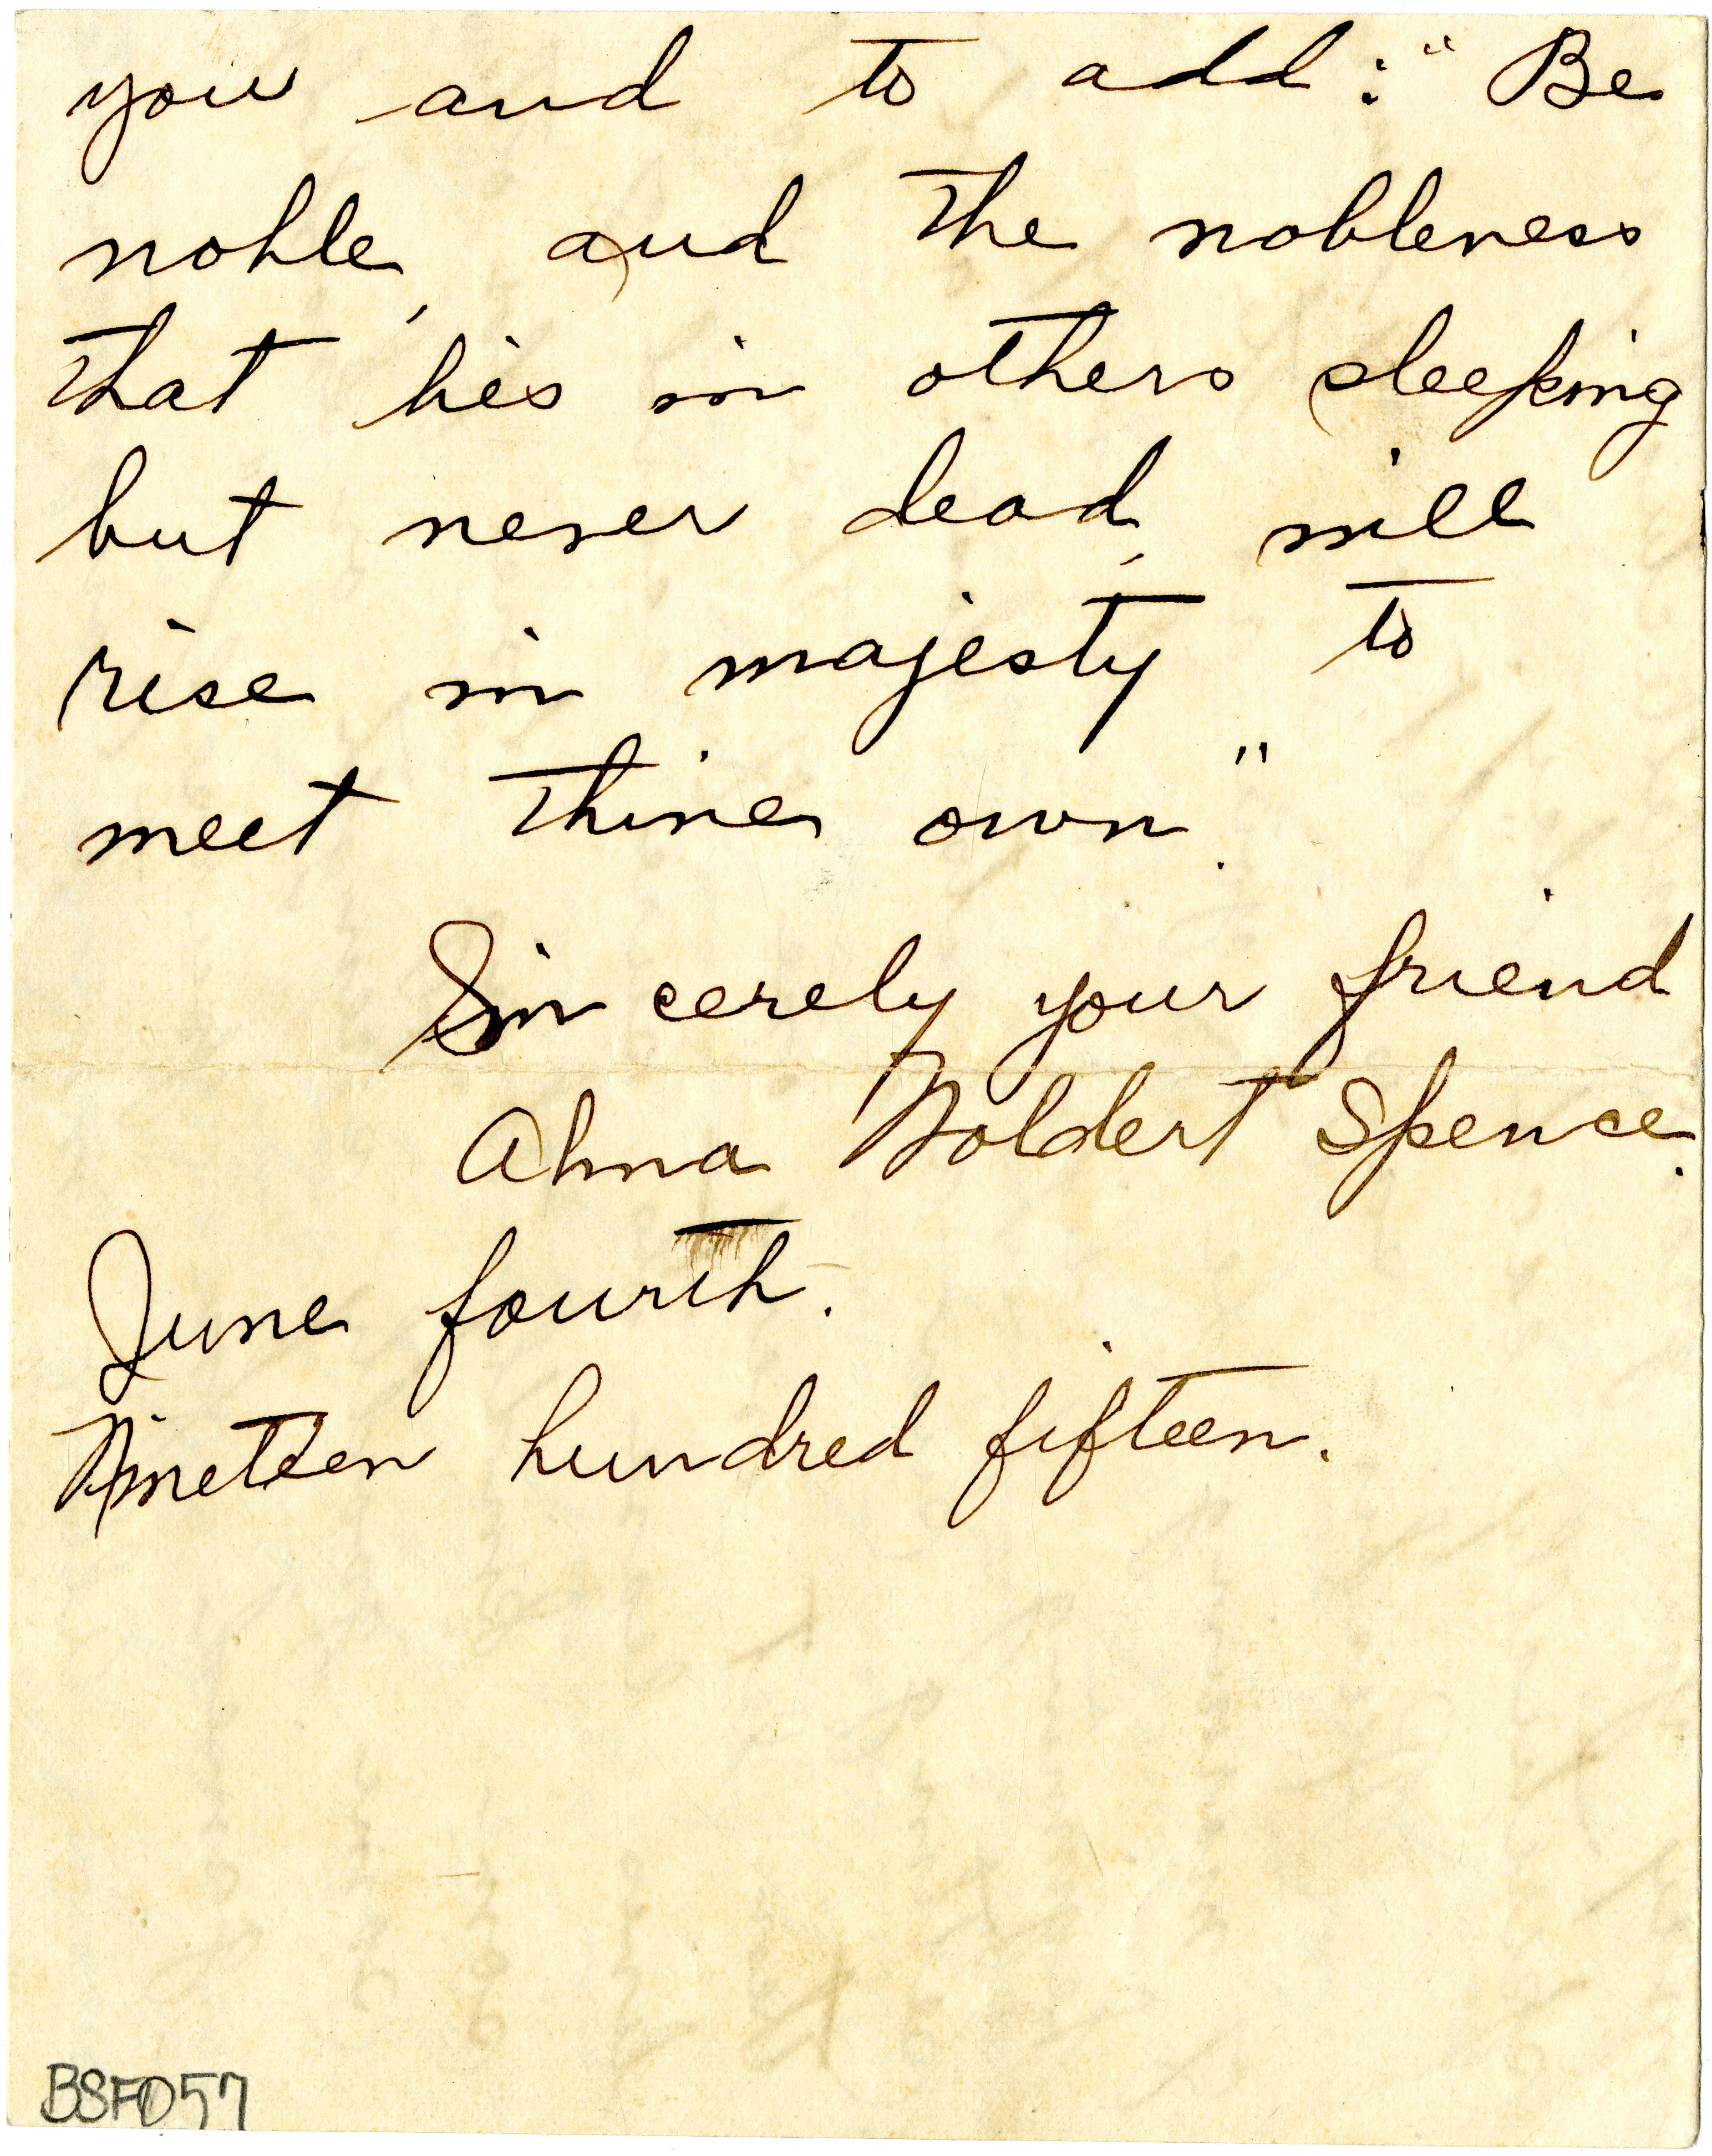 you and to add: "Be
noble, and the nobleness
that lies in others sleeping
but never dead, will
rise in majesty to
meet thine own."
Sincerely your friend
Alma Noldert Spence.
June fourth.
Nineteen hundred fifteen.
BSFD57